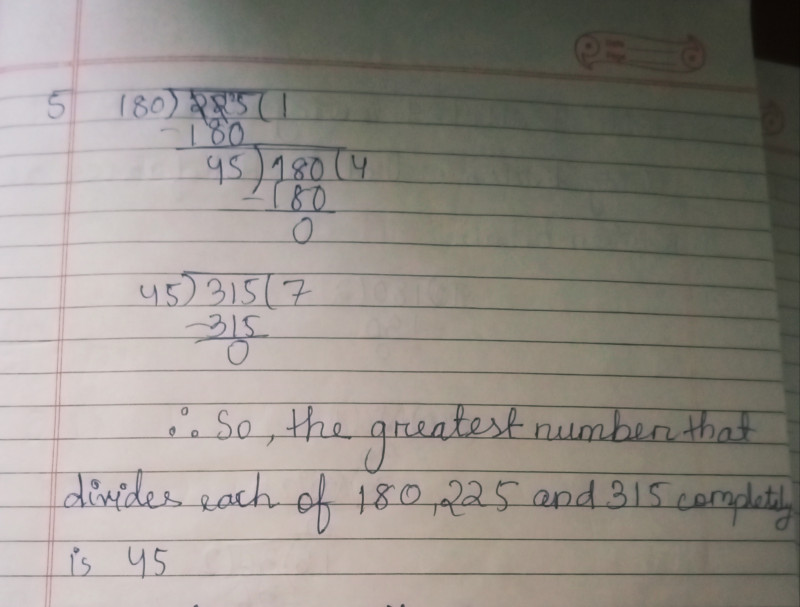 5 180) 225 (1
-180
45) 180 (4
-180
0
45) 315 (7
-315
0
∴ So, the greatest number that
divides each of 180, 225 and 315 completely
is 45